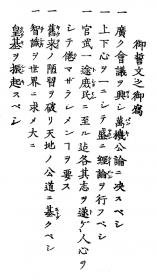 御誓文之御寫
一 廣ク會議ヲ興シ萬機公論ニ決スベシ
一 上下心ヲ一ニシテ盛ニ經綸ヲ行フベシ
一 官武一途庶民ニ至ル迄各其志ヲ遂ケ人心ヲ
シテ倦マザラシメンヿヲ要ス
一 舊來ノ陋習ヲ破リ天地ノ公道ニ基クベシ
一 智識ヲ世界ニ求メ大ニ
皇基ヲ振起スベシ